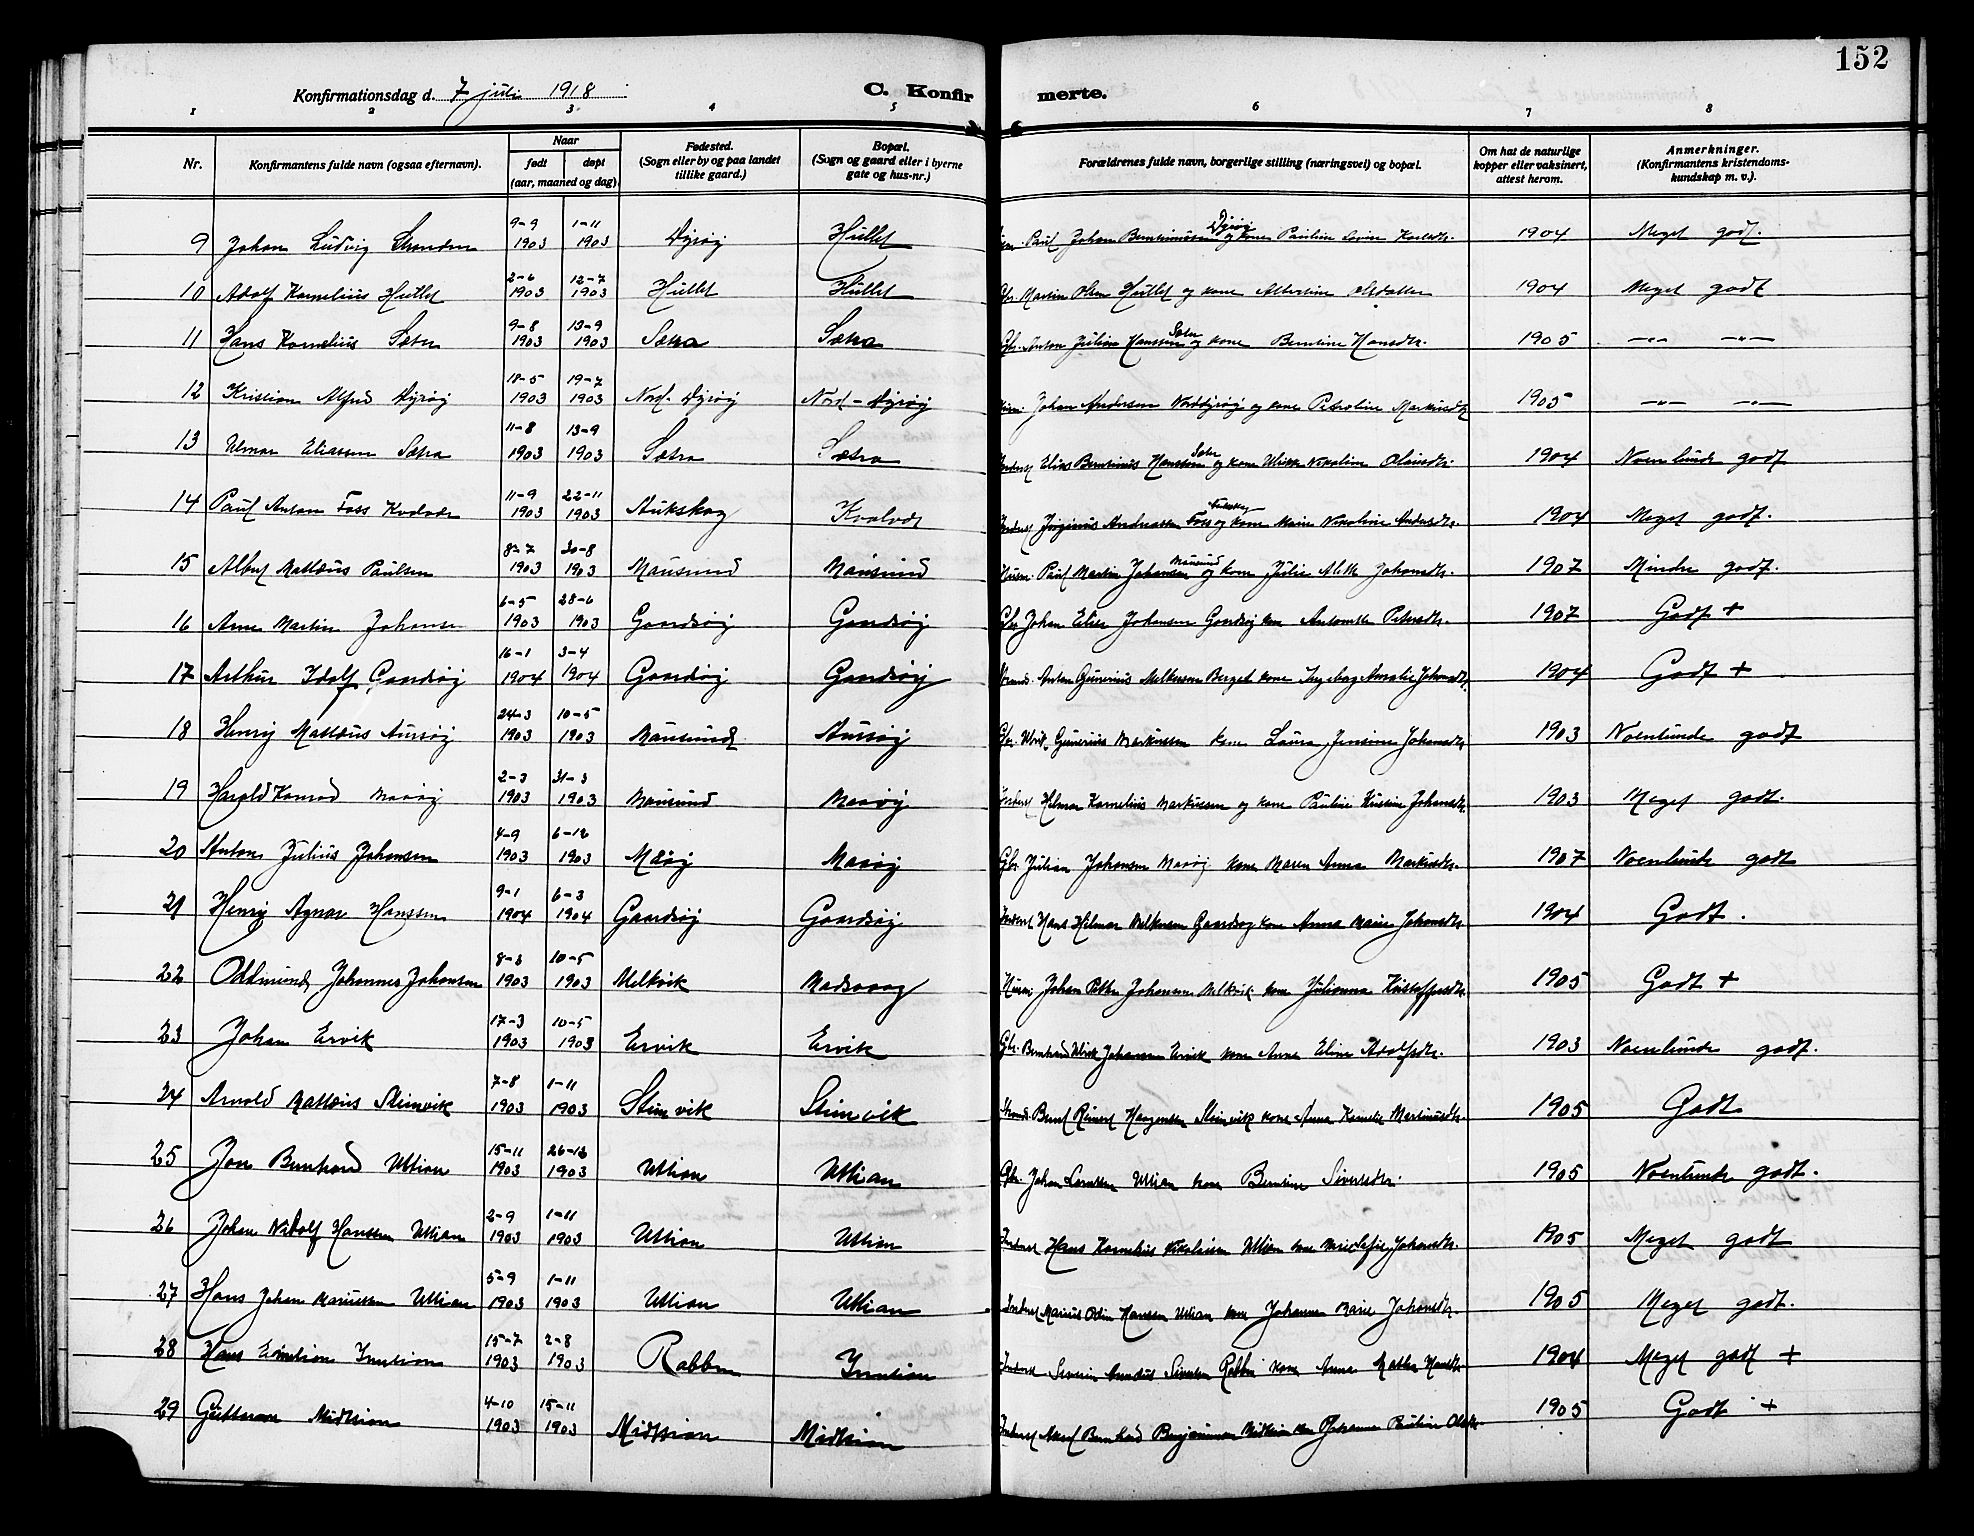 152
Konfirmationsdag d. 7 juli 1918
C. Konfirmerte.
1 2 3 4 5 6 7 8
Nr. Konfirmantens fulde navn (ogsaa efternavn). Naar født døpt (aar, maaned og dag) Fødested. (Sogn eller by og paa landet tillike gaard.) Bopæl. (Sogn og gaard eller i byerne gate og hus-nr.) Forældrenes fulde navn, borgerlige stilling (næringsvei) og bopæl. Om hat de naturlige kopper eller vaksinert, attest herom. Anmerkninger. (Konfirmantens kristendomskundskap m. v.).
9 Johan Ludvig 9-9 1903 1-11 1903 Dyrøy Hullet Paul Johan Berntinusen Dyrøy og kone Pauline 1904 Meget godt.
10 Adolf Kornelius Hullet 2-6 1903 12-7 1903 Hullet Hullet Gbr. Martin Olsen Hullet og kone Albertine 1904 Meget godt
11 Hans Kornelius Sæter 9-8 1903 13-9 1903 Sætra Sætra Gbr. Anton Julian Hanssen Sæter og kone Berntine Hansdtr. 1905 -"- -"-
12 Kristian Alfred Dyrøy 18-5 1903 19-7 1903 Nord-Dyrøy Nord-Dyrøy Johan Andersen Norddyrøy og kone Petroline Markusdtr 1905 -"- -"-
13 Eliassen Sætra 11-8 1903 13-9 1903 Sætra Sætra Inderst Elias Berntinus Hanssen Sæter og kone Nikoline 1904 Noenlunde godt
14 Paul Anton Foss Kvalvær 11-9 1903 22-11 1903 Aukskag Kvalvær Inderst Jørginus Andreassen Foss og kone Marie Nikoline Andersdtr. 1904 Meget godt.
15 Albert Mattæus Paulsen 8-7 1903 30-8 1903 Mausund Mausund Husm. Paul Martin Johansen Mausund og kone Julie Johansdtr. 1907 Mindre godt.
16 Arne Martin Johansen 6-5 1903 28-6 1903 Gaardsøy Gaardsøy Gbr Johan Johansen Gaardsøy kone Antonette Petersdtr. 1907 Godt +
17 Arthur Idolf Gaardsøy 16-1 1904 3-4 1904 Gaardsøy Gaardsøy Anton Gunerius Melkersen Berget kone Ingeborg Amalie Johansdtr 1904 Godt +
18 Henry Mattæus Aursøy 24-3 1903 10-5 1903 Mausund Aursøy Gbr. Ulrik Gunerius Markussen kone Laura Jensine Johansdtr 1903 Noenlunde godt
19 Harald Konrad Maøy 2-3 1903 31-3 1903 Mausund Maaøy Inderst Helmer Kornelius Markussen og kone Pauline Kristine Johansdtr 1903 Meget godt.
20 Anton Julius Johansen 4-9 1903 6-12 1903 Maøy Maaøy Gbr. Julian Johansen Maaøy kone Maren Anna Markusdtr. 1907 Noenlunde godt
21 Henry Agnar Hanssen 9-1 1904 6-3 1904 Gaardsøy Gaardsøy Inderst Hans Hilmar Melkersen Gaardsøy kone Anna Marie Johansdtr 1904 Godt.
22 Oddmund Johannes Johansen 8-3 1903 10-5 1903 Melkvik Madsvaag Husm. Johan Petter Johansen Melkvik kone Julianna Kristoffersdtr 1905 Godt +
23 Johan Ervik 17-3 1903 10-5 1903 Ervik Ervik Gbr. Bernhard Ulrik Johansen Ervik kone Anna Eline Adolfsdtr. 1903 Noenlunde godt.
24 Arnold Mattæus Steinvik 7-8 1903 1-11 1903 Steinvik Steinvik Strands. Bernt Reinert Haagensen Steinvik kone Anna Kornelie Martinusdtr. 1905 Godt
25 Jon Bernhard Uttian 15-11 1903 26-12 1903 Uttian Uttian Gbr. Johan Uttian kone Berntine Sivertsdtr. 1905 Noenlunde godt.
26 Johan Nidolf Hanssen Uttian 2-9 1903 1-11 1903 Uttian Uttian Inderst Hans Kornelius Nikolaisen Uttian kone Johansdtr. 1905 Meget godt
27 Hans Johan Mariussen Uttian 5-9 1903 1-11 1903 Uttian Uttian Inderst Marius Odin Hanssen Uttian kone Johanna Marie Johansdtr. 1905 Meget godt.
28 Hans Emelian Inntian 15-7 1903 2-8 1903 Rabben Inntian Inderst Severin Sivertsen Rabben kone Anna Hansdtr 1904 Meget godt +
29 Guttorm Midtsian 4-10 1903 15-11 1903 Midtsian Midtsian Inderst Bernhard Benjaminsen Midtsian kone Johanna Pauline Olsdtr. 1905 Godt +